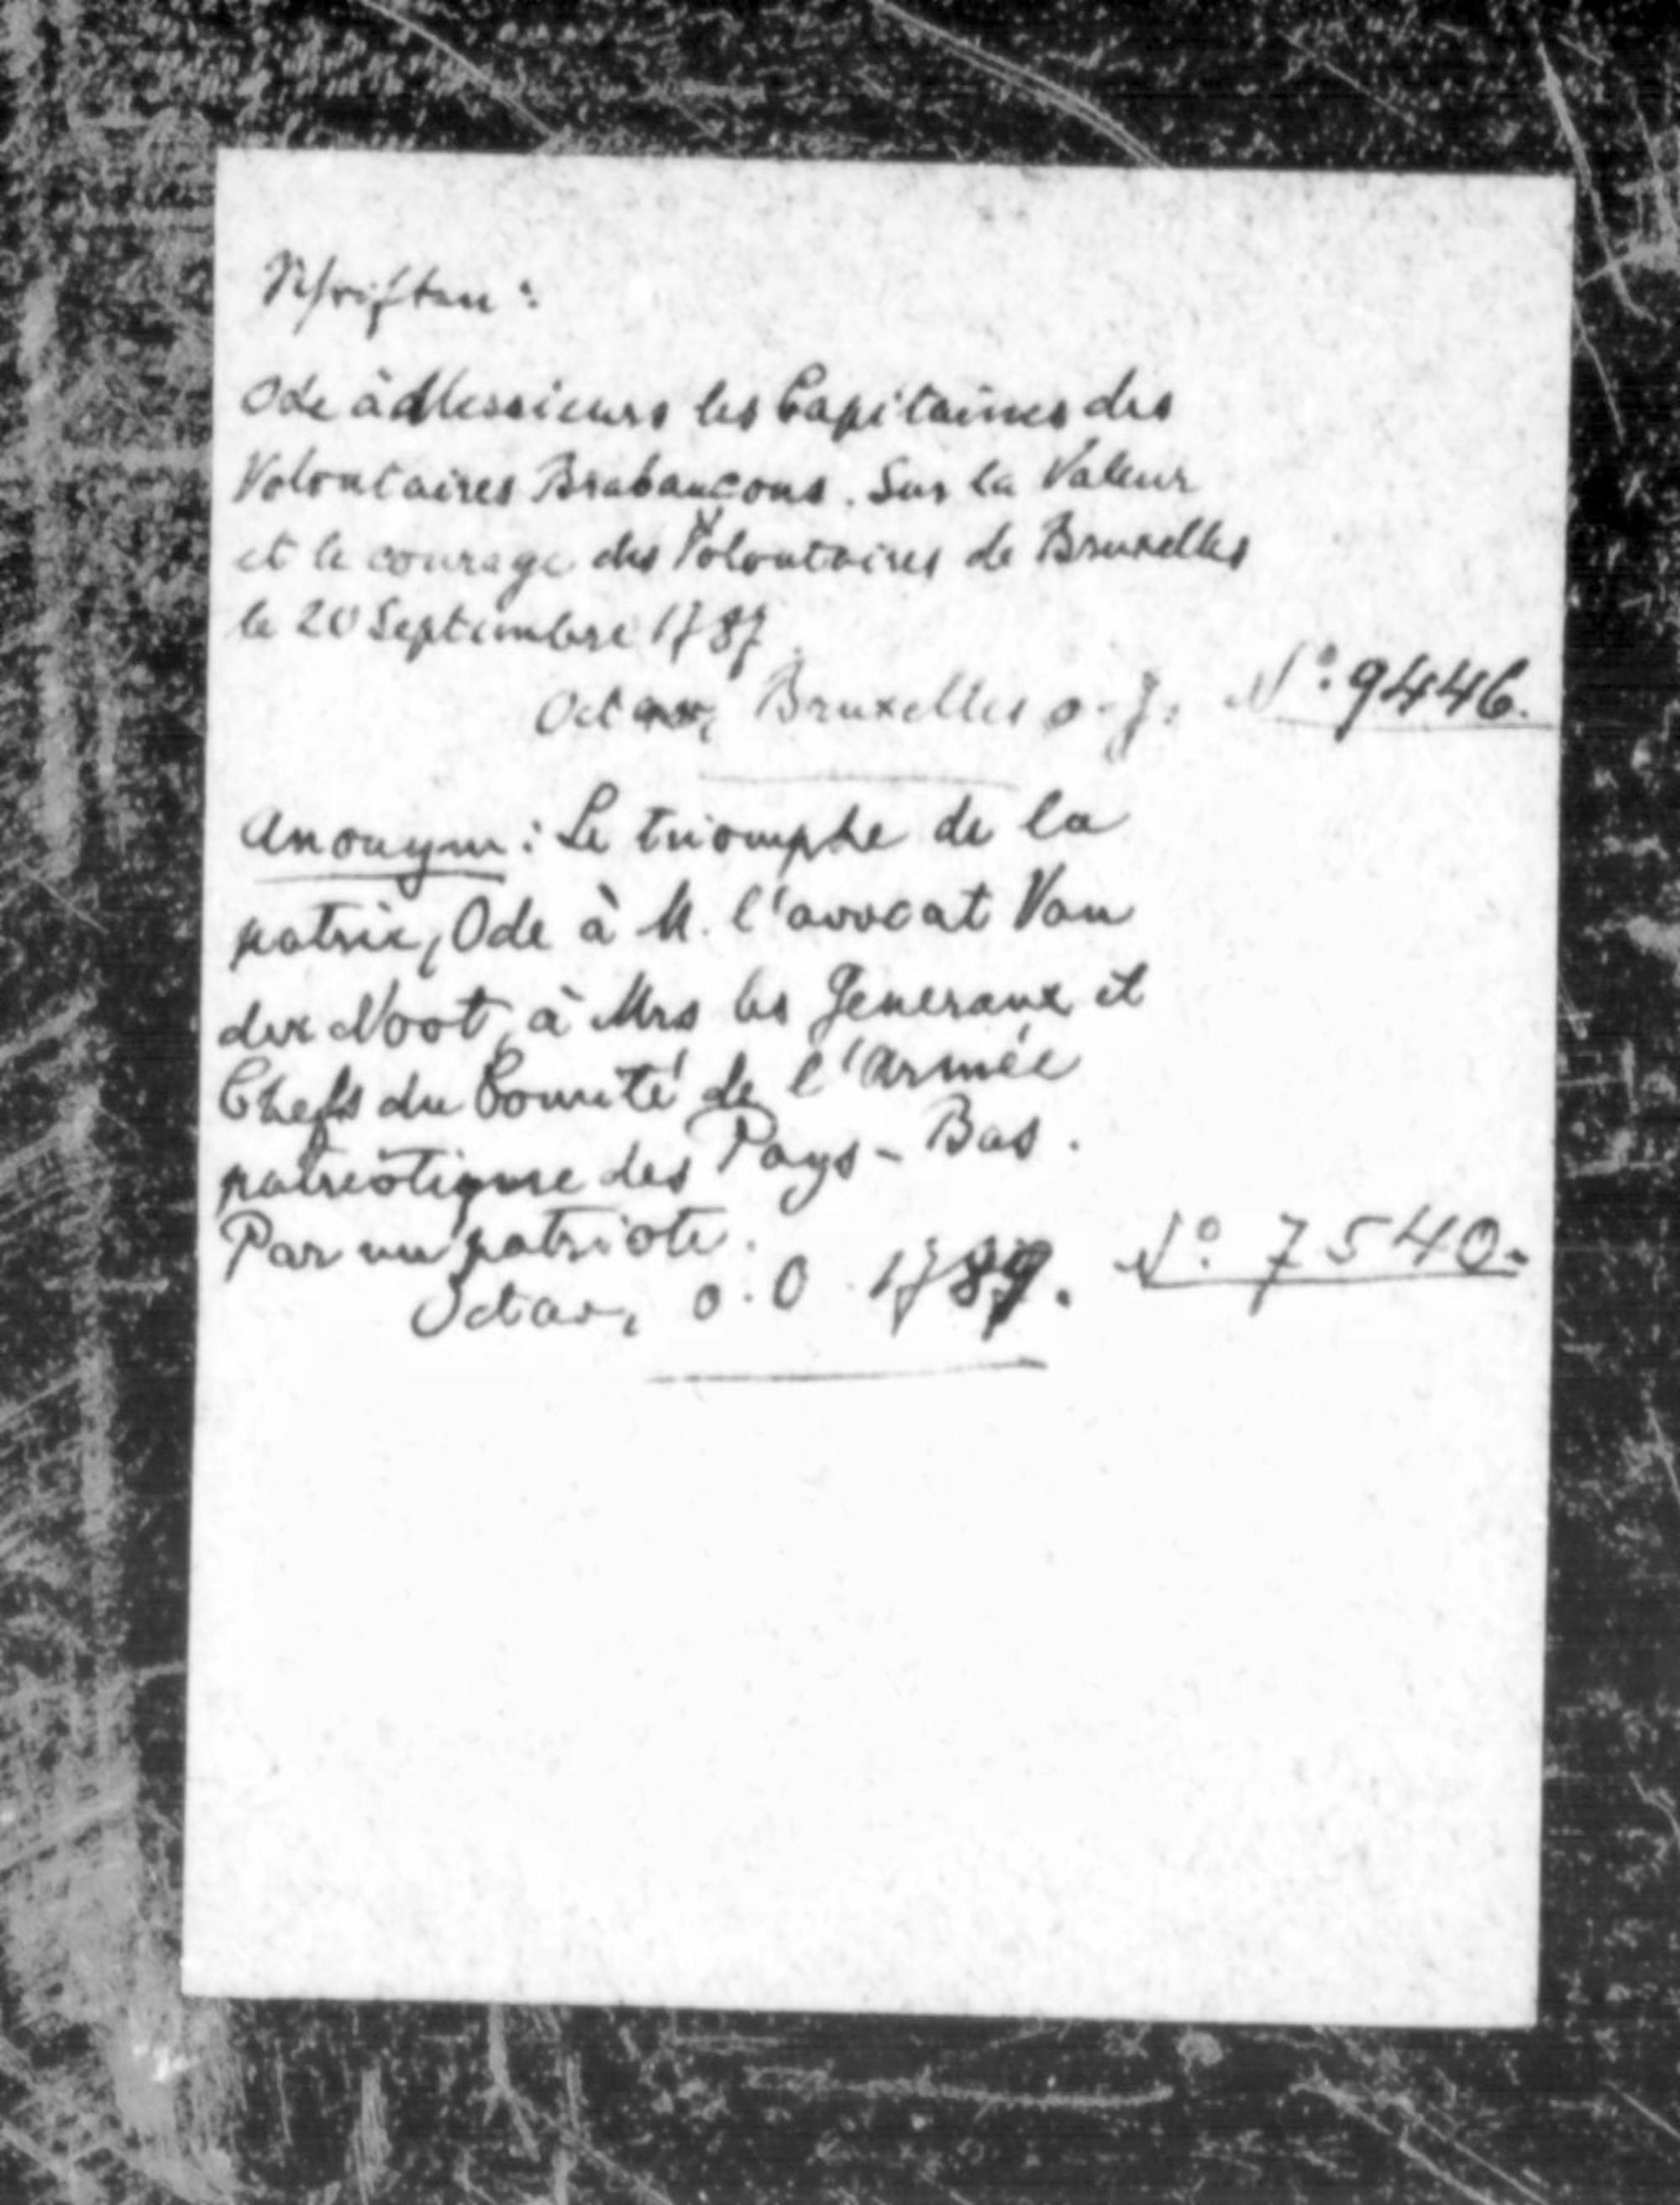 Schriften:
Ode à Messieurs les Capitaines des
Volontaires Brabançons. Sur la Valeur
et le courage des Volontaires de Bruxelles
le 20 Septembre 1787.
Octav, Bruxelles o. J. No. 9446.
Anonym: Le triomphe de la
patrie, Ode à M. l'avocat Van
der Noot, à Mrs les Generaux et
Chefs du Comité de l'Armée
patriotique des Pays-Bas.
Par un patriote.
Octav, o. O 1789. No. 7540.